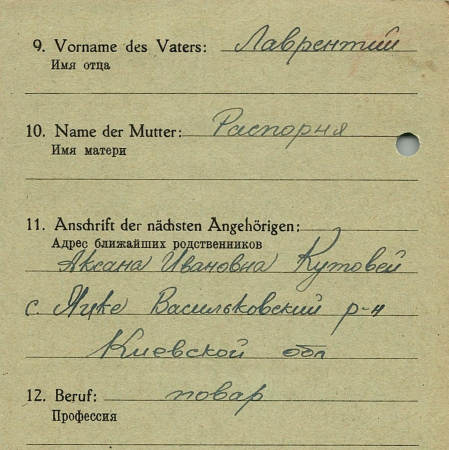 9. Vorname des Vaters: Лаврентий
Имя отца
10. Name der Mutter: Распорня
Имя матери
11. Anschrift der nächsten Angehörigen:
Адрес ближайших родственников
Аксана Ивановна Кутовей
с. Васильковский р-н
Киевской обл
12. Beruf: повар
Профессия